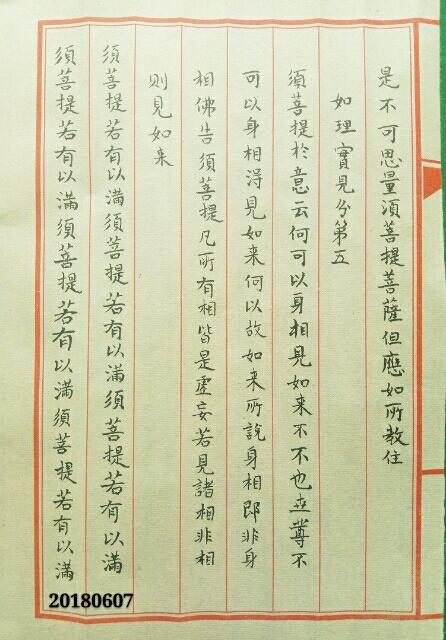 是不可思量須菩提菩薩但應如所教住
如理實見分第五
須菩提於意云何可以身相見如来不不也世尊不
可以身相得見如来何以故如来所說身相即非身
相佛告須菩提凡所有相皆是虛妄若見諸相非相
则見如来
須菩提若有以滿須菩提若有以滿須菩提若有以滿
須菩提若有以滿須菩提若有以滿須菩提若有以滿
20180607